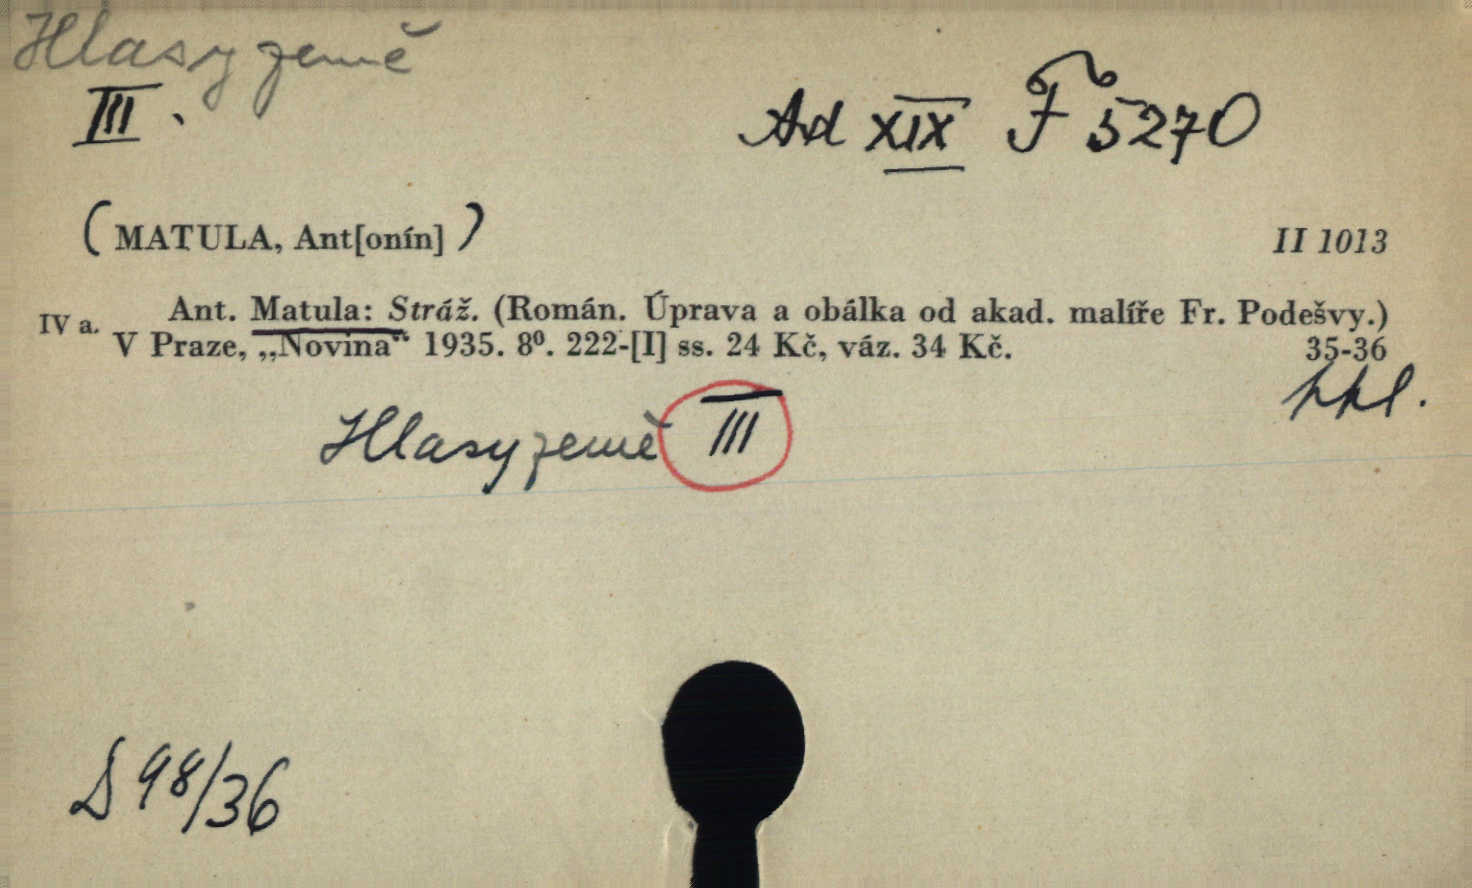 Hlasy země
III.
Ad XIX F 5270
(MATULA, Ant[onín])
II 1013
IV a.
Ant. Matula: Stráž. (Román. Úprava a obálka od akad. malíře Fr. Podešvy.)
V Praze, „Novina“ 1935. 8⁰. 222-[I] ss. 24 Kč, váz. 34 Kč.
35-36
Hlasy země III
D 98/36